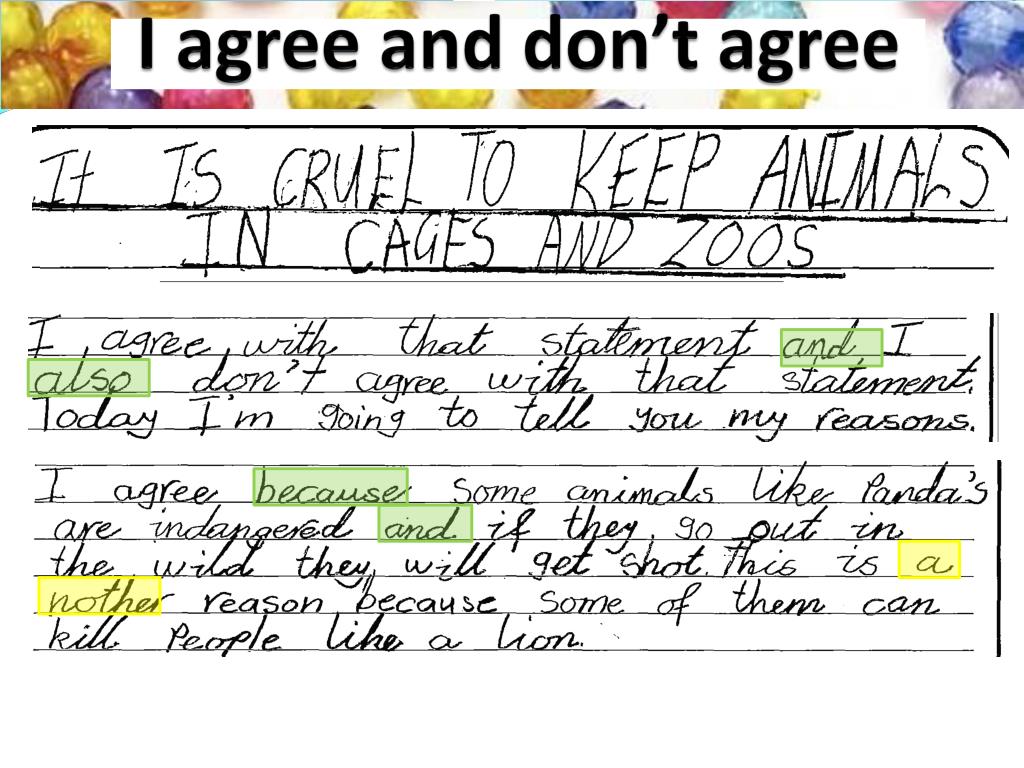 I agree and don't agree
It IS CRUEL TO KEEP ANIMALS
IN CAGES AND ZOOS
I agree with that statement and I
also don't agree with that statement.
Today I'm going to tell you my reasons.
I agree because some animals like Panda's
are indangered and if they go out in
the wild they will get shot. This is a
nother reason because some of them can
kill People like a lion.